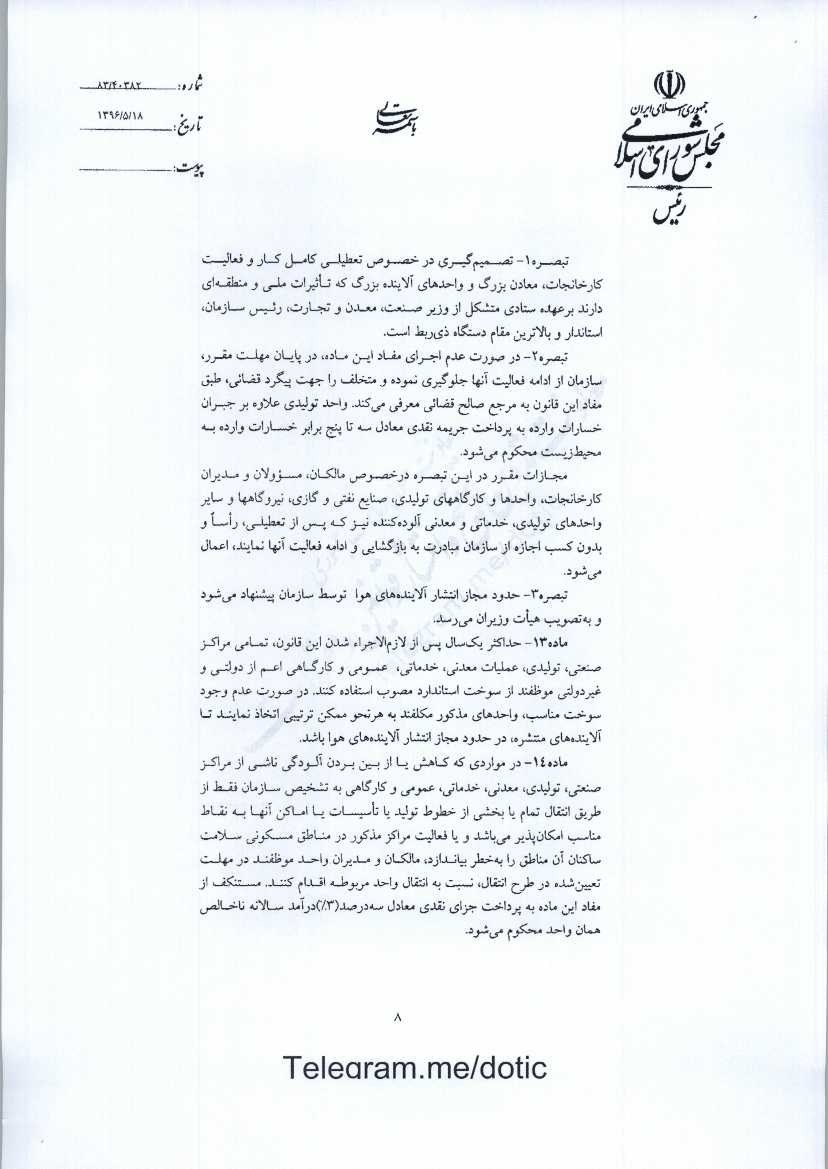 جمهوری اسلامی ایران
مجلس شورای اسلامی
رئیس
باسمه تعالی
شماره: ۸۳/۴۰۳۸۲
تاریخ: ۱۳۹۶/۵/۱۸
پیوست:
تبصره۱- تصمیم‌گیری در خصوص تعطیلی کامل کار و فعالیت
کارخانجات، معادن بزرگ و واحدهای آلاینده بزرگ که تأثیرات ملی و منطقه‌ای
دارند برعهده ستادی متشکل از وزیر صنعت، معدن و تجارت، رئیس سازمان،
استاندار و بالاترین مقام دستگاه ذی‌ربط است.
تبصره۲- در صورت عدم اجرای مفاد این ماده، در پایان مهلت مقرر،
سازمان از ادامه فعالیت آنها جلوگیری نموده و متخلف را جهت پیگرد قضائی، طبق
مفاد این قانون به مرجع صالح قضائی معرفی می‌کند. واحد تولیدی علاوه بر جبران
خسارات وارده به پرداخت جریمه نقدی معادل سه تا پنج برابر خسارات وارده به
محیط‌زیست محکوم می‌شود.
مجازات مقرر در این تبصره درخصوص مالکان، مسؤولان و مدیران
کارخانجات، واحدها و کارگاههای تولیدی، صنایع نفتی و گازی، نیروگاهها و سایر
واحدهای تولیدی، خدماتی و معدنی آلوده‌کننده نیز که پس از تعطیلی، رأساً و
بدون کسب اجازه از سازمان مبادرت به بازگشایی و ادامه فعالیت آنها نمایند، اعمال
می‌شود.
تبصره۳- حدود مجاز انتشار آلاینده‌های هوا توسط سازمان پیشنهاد می‌شود
و به‌تصویب هیأت وزیران می‌رسد.
ماده۱۳- حداکثر یک‌سال پس از لازم‌الاجراء شدن این قانون، تمامی مراکز
صنعتی، تولیدی، عملیات معدنی، خدماتی، عمومی و کارگاهی اعم از دولتی و
غیردولتی موظفند از سوخت استاندارد مصوب استفاده کنند. در صورت عدم وجود
سوخت مناسب، واحدهای مذکور مکلفند به هرنحو ممکن ترتیبی اتخاذ نمایند تا
آلاینده‌های منتشره، در حدود مجاز انتشار آلاینده‌های هوا باشد.
ماده۱۴- در مواردی که کاهش یا از بین بردن آلودگی ناشی از مراکز
صنعتی، تولیدی، معدنی، خدماتی، عمومی و کارگاهی به تشخیص سازمان فقط از
طریق انتقال تمام یا بخشی از خطوط تولید یا تأسیسات یا اماکن آنها به نقاط
مناسب امکان‌پذیر می‌باشد و یا فعالیت مراکز مذکور در مناطق مسکونی سلامت
ساکنان آن مناطق را به‌خطر بیاندازد، مالکان و مدیران واحد موظفند در مهلت
تعیین‌شده در طرح انتقال، نسبت به انتقال واحد مربوطه اقدام کنند. مستنکف از
مفاد این ماده به پرداخت جزای نقدی معادل سه‌درصد(۳٪)درآمد سالانه ناخالص
همان واحد محکوم می‌شود.
۸
Telegram.me/dotic